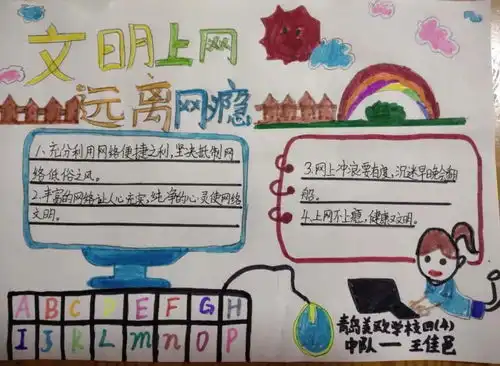 文明上网
远离网瘾
1、充分利用网络便捷之利,坚决抵制网
络低俗之风。
2、丰富的网络让人心充实,纯净的心灵使网络
文明。
3、网上冲浪要有度,沉迷早晚会翻
船。
4、上网不上瘾,健康又文明。
A B C D E F G H
I J K L M N O P
青岛美欧学校四(4)
中队——王佳邑